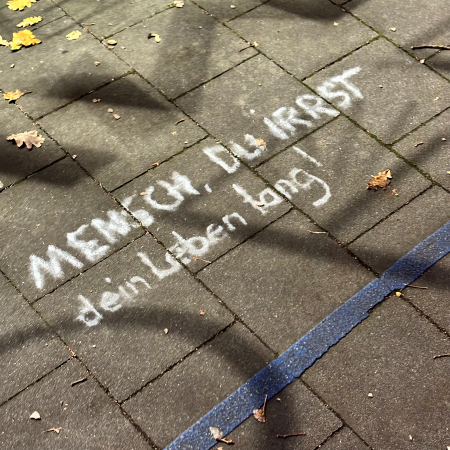 MENSCH, DU IRRST
dein Leben lang!